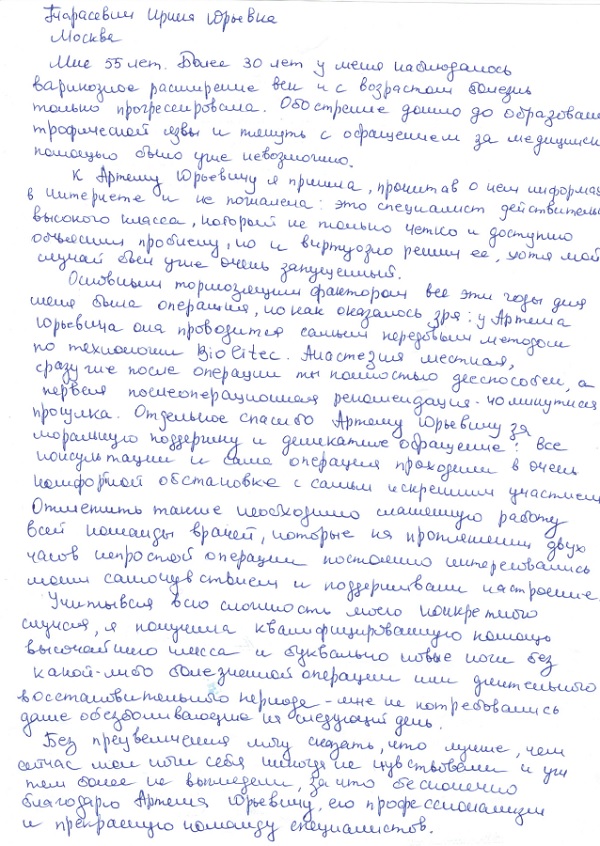 Тарасевич Ирина Юрьевна
Москва
Мне 55 лет. Более 30 лет у меня наблюдалось
варикозное расширение вен и с возрастом болезнь
только прогрессировала. Обострение дошло до образован
трофической язвы и тянуть с обращением за медицинск
помощью было уже невозможно.
К Артему Юрьевичу я пришла, прочитав о нем информа
в интернете и не пожалела: это специалист действительн
высокого класса, который не только четко и доступно
объяснил проблему, но и виртуозно решил ее, хотя мой
случай был уже очень запущенный.
Основным тормозящим фактором все эти годы для
меня была операция, но как оказалось зря: у Артема
Юрьевича она проводится самым передовым методом
по технологии Biolitec. Анастезия местная,
сразу же после операции ты полностью дееспособен, а
первая послеоперационная рекомендация - 40 минутная
прогулка. Отдельное спасибо Артему Юрьевичу за
моральную поддержку и деликатное обращение: все
консультации и сама операция проходили в очень
комфортной обстановке с самым искренним участием
Отметить также необходимо слаженную работу
всей команды врачей, которые на протяжении двух
часов непростой операции постоянно интересовались
моим самочувствием и поддерживали настроение.
Учитывая всю сложность моего конкретного
случая, я получила квалифицированную помощь
высочайшего класса и буквально новые ноги без
какой-либо болезненной операции или длительного
восстановительного периода - мне не потребовались
даже обезболивающие на следующий день.
Без преувеличения могу сказать, что лучше, чем
сейчас мои ноги себя никогда не чувствовали и уж
тем более не выглядели, за что бесконечно
благодарю Артема Юрьевича, его профессионализм
и прекрасную команду специалистов.